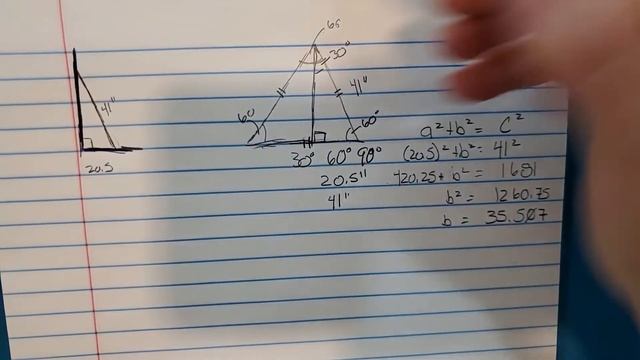 41"
20.5
60
30°
41"
60
60°
30° 60° 90°
20.5"
41"
a² + b² = c²
(20.5)² + b² = 41²
420.25 + b² = 1681
b² = 1260.75
b = 35.507